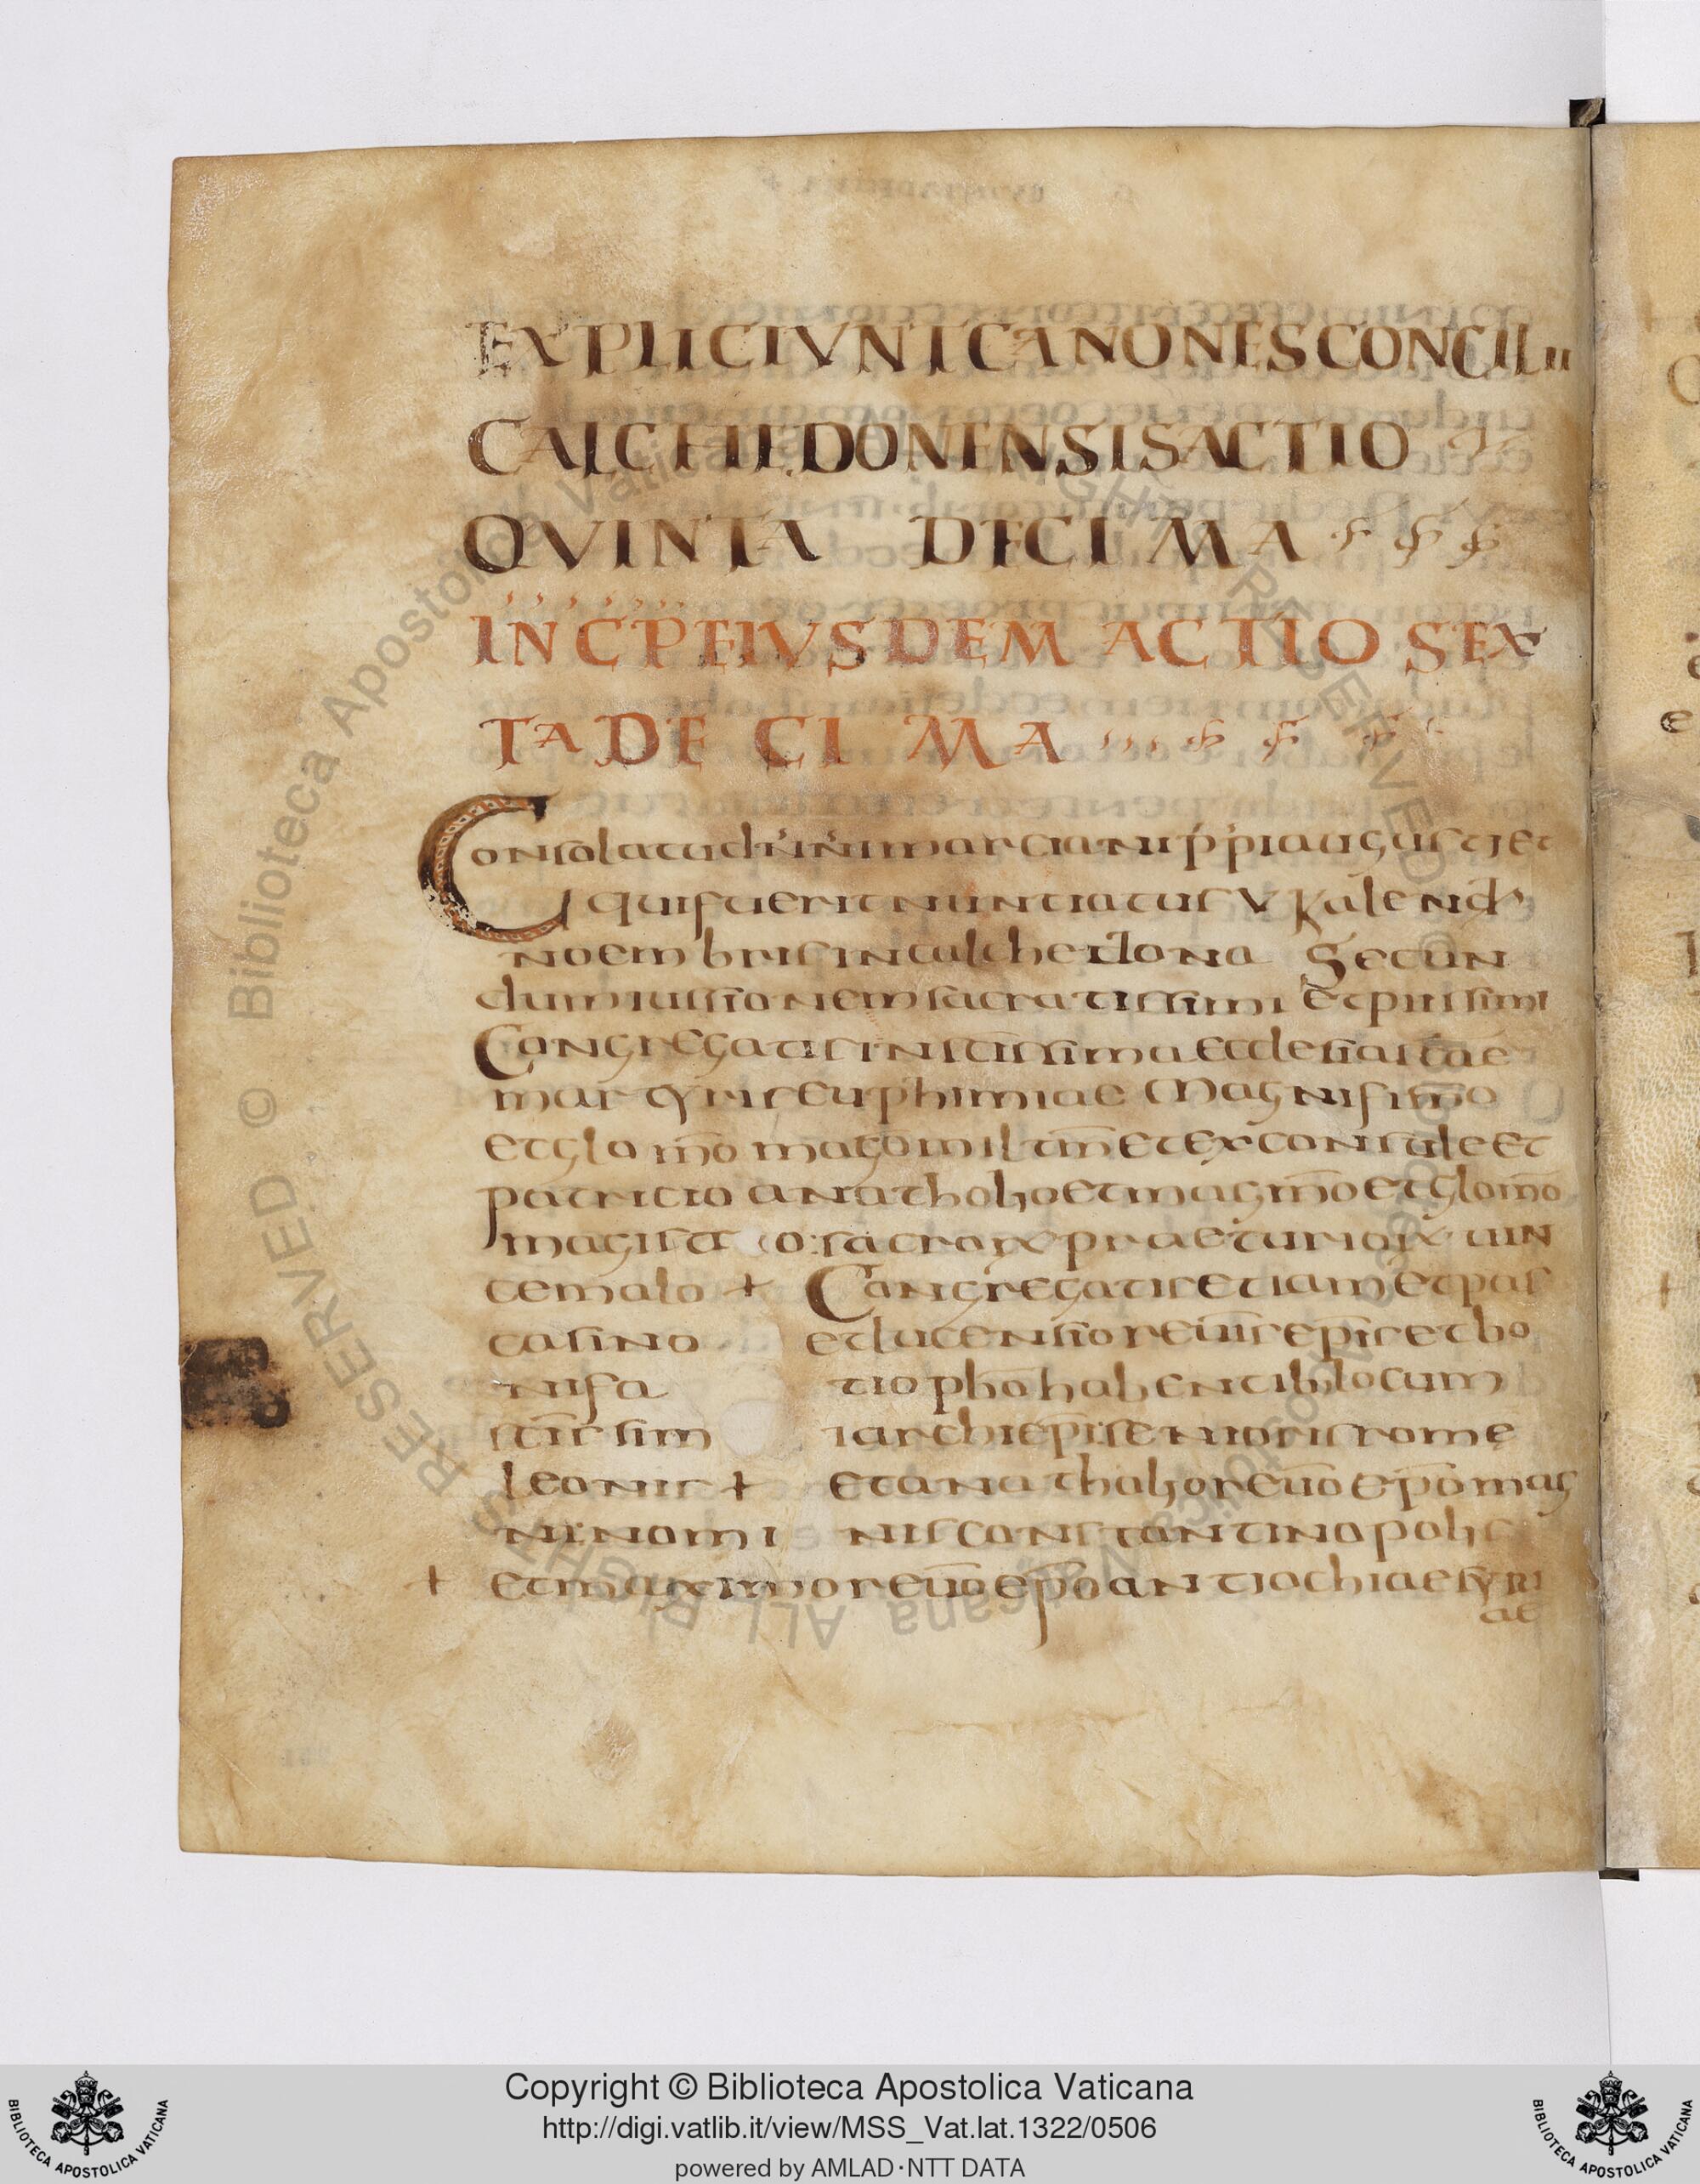 EXPLICIVNT CANONES CONCILII
CALCHEDONENSIS ACTIO
QVINTA DECIMA
INCP EIVSDEM ACTIO SEX
TA DECIMA
Consolatu dn̄i n̄i marciani p̄p̄i augusti et
qui fuerit nuntiatus V kalend
noembris in calchedona Secun
dum iussionem sacratissimi et piissimi
Congregatis in sc̄issima ecclesia sc̄ae
martyris euphimiae Magnifim̄o
et glom̄o mag̅o mil̅ um̅ et ex consule et
patricio anatholio et magm̄o et glom̄o
magistro sacrorx praeturiorx uin
cemalo + Congregatis etiam et pas
casino et lucensio reūis ep̄is et bo
nifatio pb̄o habentib̄ locum
sc̄issimi archiep̄i senioris rome
leonis + et anatholio reūo ep̄o mag
ni nominis constantinopolis
+ et maximo reūo ep̄o antiochiae syri
ae
Copyright © Biblioteca Apostolica Vaticana
http://digi.vatlib.it/view/MSS_Vat.lat.1322/0506
powered by AMLAD·NTT DATA
BIBLIOTECA APOSTOLICA VATICANA
BIBLIOTECA APOSTOLICA VATICANA
© Biblioteca Apostolica Vaticana ALL RIGHTS RESERVED